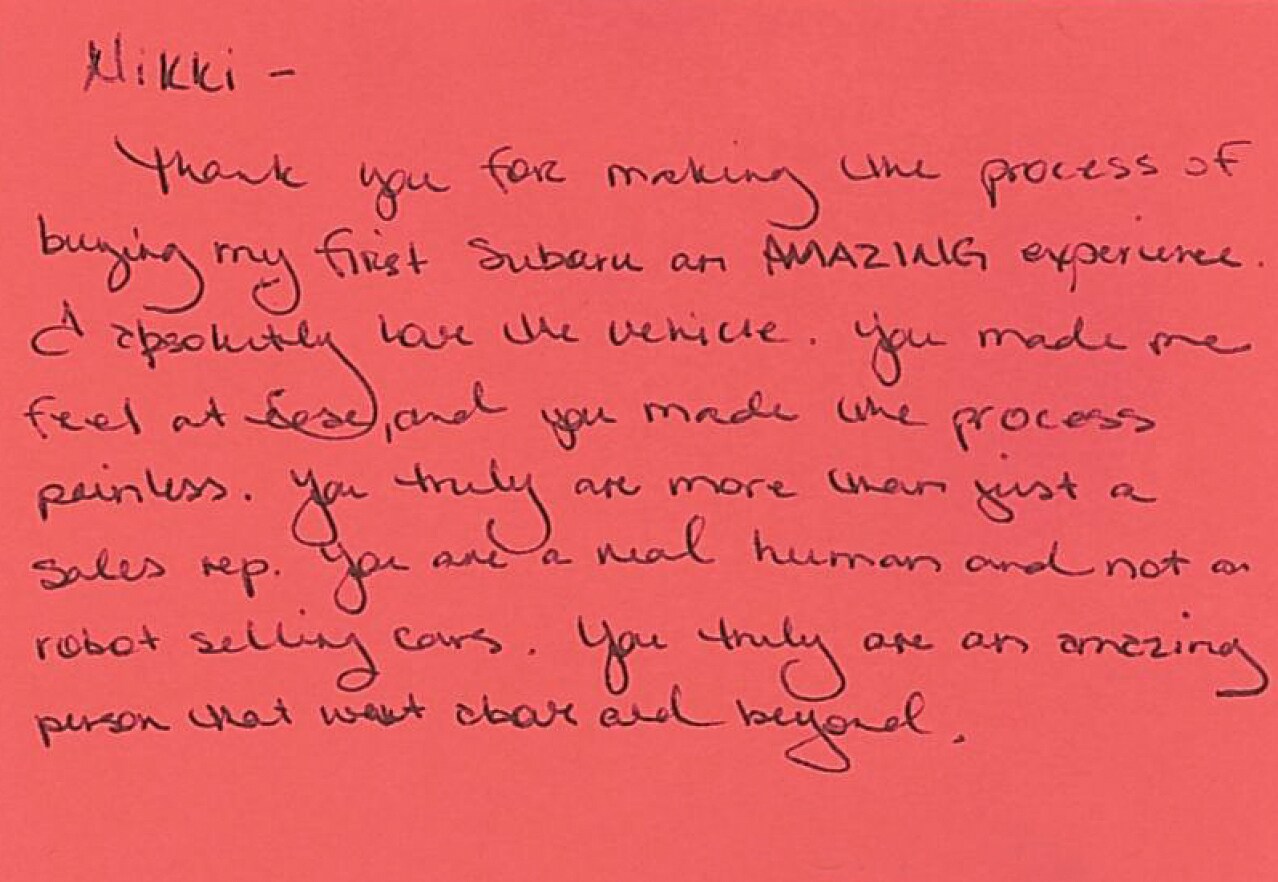 Nikki -
Thank you for making the process of
buying my first Subaru an AMAZING experience.
I absolutely love the vehicle. You made me
feel at ease, and you made the process
painless. You truly are more than just a
sales rep. You are a real human and not a
robot selling cars. You truly are an amazing
person that went above and beyond.